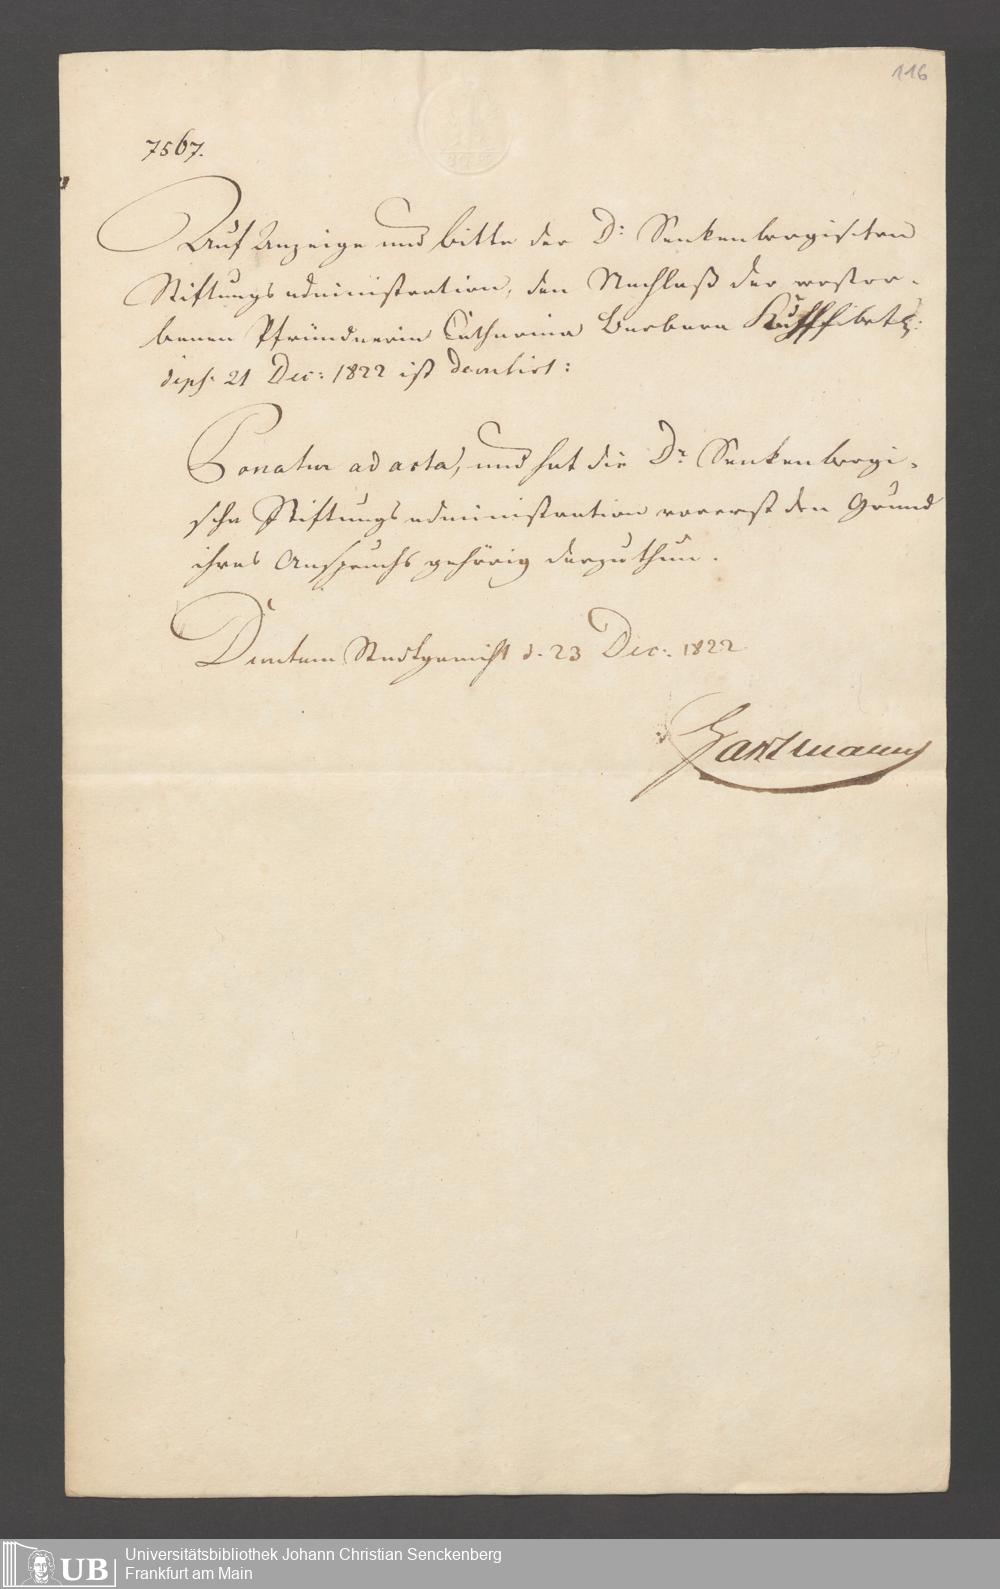 116
7567.
Auf Anzeige und Bitte der Dr: Senkenbergischen
Stiftungsadministration, den Nachlaß der verstor-
benen Pfründnerin Catharina Barbara betr:
21 Dec: 1822 ist decretirt:
Ponatur ad acta, und hat die Dr. Senkenbergi-
sche Stiftungsadministration vorerst den Grund
ihres Anspruchs gehörig darzuthun.
Decretum Stadtgericht d. 23 Dec: 1822
Hartmann
UB
Universitätsbibliothek Johann Christian Senckenberg
Frankfurt am Main